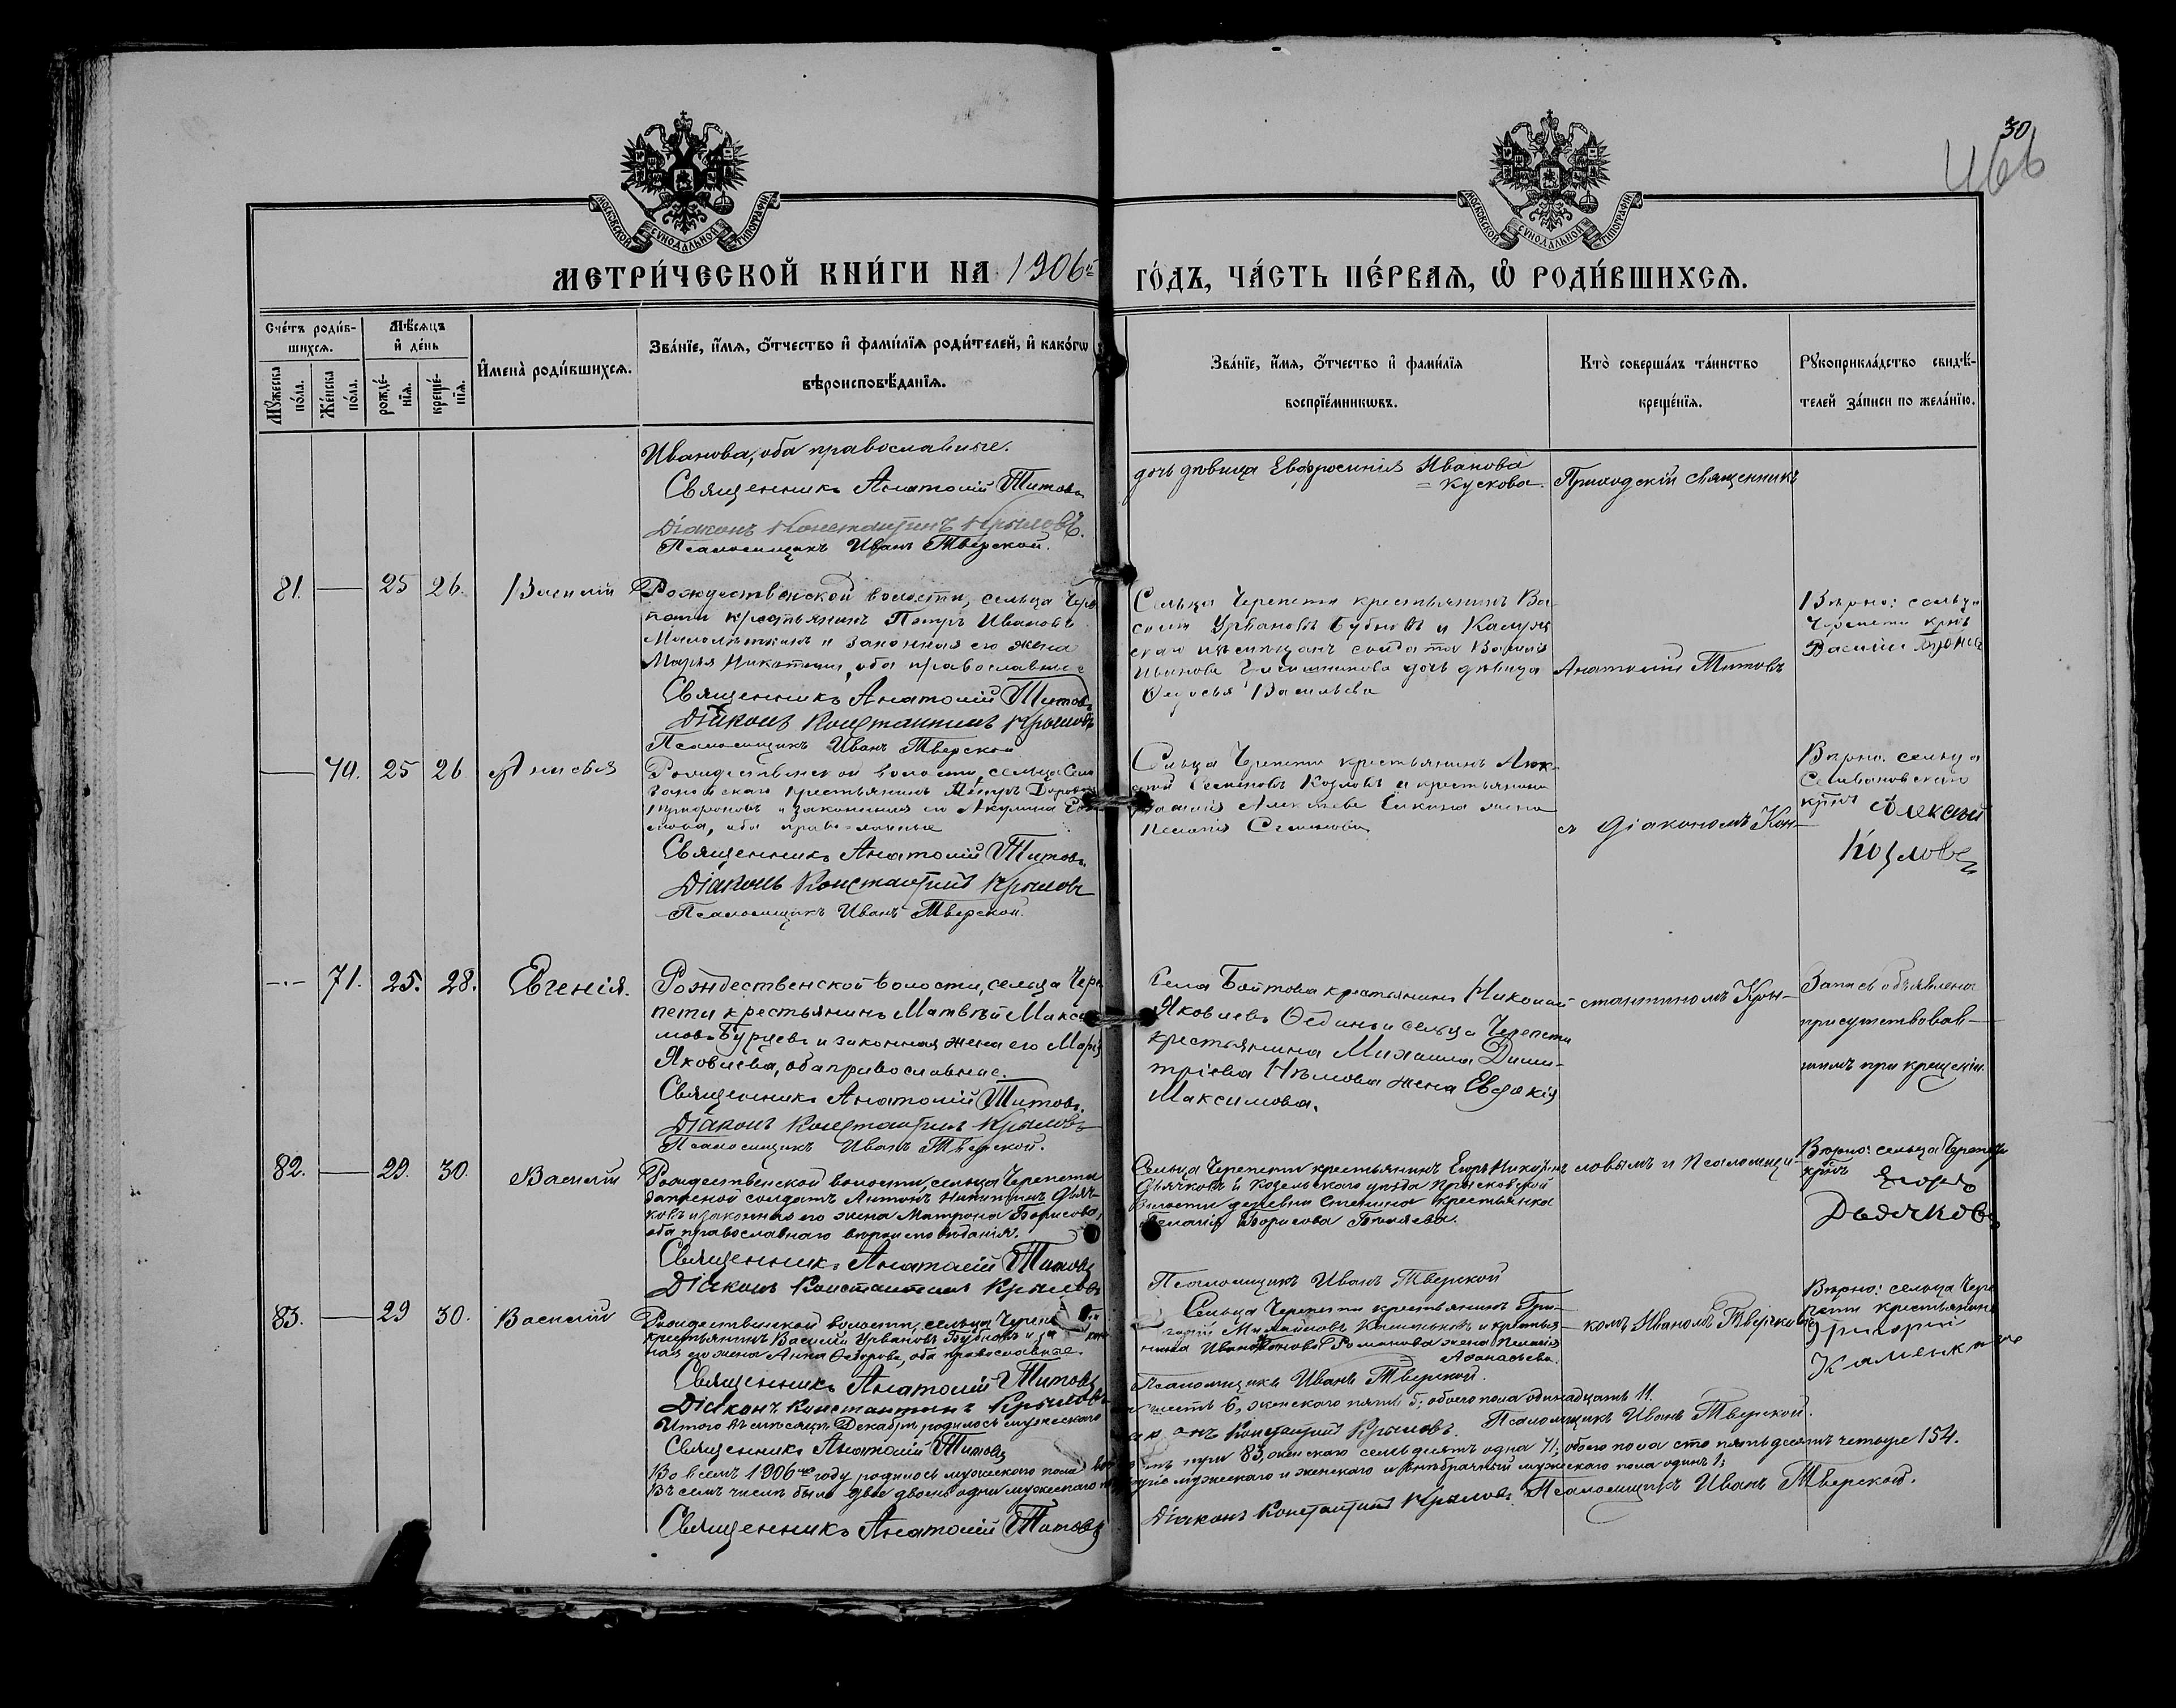 30
466
МОСКОВСКОЙ СѴНОДАЛЬНОЙ ТИПОГРАФІИ
МОСКОВСКОЙ СѴНОДАЛЬНОЙ ТИПОГРАФІИ
МЕТРИ́ЧЕСКОЙ КНИ́ГИ НА 1906й ГО́ДЪ, ЧА́СТЬ ПЕ́РВАѦ, Ѡ҆ РОДИ́ВШИХСѦ.
Сче́тъ роди́в-
шихсѧ.
Мѣ́сѧцъ
и҆ де́нь
Мꙋжеска по́ла.
Же́нска по́ла.
рожде́-
нїѧ.
креще́-
нїѧ.
И҆мена̀ роди́вшихсѧ.
Зва́нїе, и҆́мѧ, ѻ҆́тчество и҆ фами́лїѧ роди́телей, и҆ како́гѡ
вѣроисповѣ́данїѧ.
Зва́нїе, и҆́мѧ, ѻ҆́тчество и҆ фами́лїѧ
воспрїе́мникѡвъ.
Кто̀ соверша́лъ та́инство
креще́нїѧ.
Рꙋкоприкла́дство свидѣ́-
телей за́писи по жела́нїю.
Иванова, оба православные.
Священникъ Анатолій Титовъ
Діаконъ Константинъ Крыловъ.
Псаломщикъ Иванъ Тверской.
дочь дѣвица Евфросинія Иванова
Кускова.
Приходскій священникъ
81. — 25 26. Василій
Рождественской волости, сельца Чере-
пети крестьянинъ Петръ Ивановъ
и законная его жена
Марья Никитина, оба православные
Священникъ Анатолій Титовъ
Діаконъ Константинъ Крыловъ
Псаломщикъ Иванъ Тверской
Сельца Черепети крестьянинъ Ва-
силій Урвановъ Бубновъ и Калуж-
ская солдата Василія
Иванова дочь дѣвица
Васильева
Анатолій Титовъ
Вѣрно: сельца
Черепети крнъ
Василій
— 70. 25 26 Анисья
Рождественской волости, сельца Сели-
вановскаго крестьянинъ Петръ
и законная его Акулина
оба православные
Священникъ Анатолій Титовъ
Діаконъ Константинъ Крыловъ
Псаломщикъ Иванъ Тверской.
Сельца Черепети крестьянинъ Алек-
сѣй Семеновъ Козловъ и крестьянина
Алексѣева жена
Пелагія Семенова
съ діакономъ Кон-
Вѣрно: сельца
Селивановскаго
крнъ Алексѣй
Козловъ
— 71. 25. 28. Евгенія.
Рождественской волости, сельца Чере-
пети крестьянинъ Матвѣй Макси-
мовъ Бурцевъ и законная жена его Марія
Яковлева, оба православные.
Священникъ Анатолій Титовъ.
Діаконъ Константинъ Крыловъ
Псаломщикъ Иванъ Тверской.
Села Бойтова крестьянинъ Николай
Яковлевъ Ѳединъ и сельца Черепети
крестьянина Михаила Дими-
тріева Нѣмова жена Евдокія
Максимова.
стантиномъ Кры-
Запись объявлена
присутствовав-
шимъ при крещеніи.
82. — 29. 30. Василій
Рождественской волости, сельца Черепети
запасной солдатъ Антонъ Никитинъ Дьяч-
ковъ и законная его жена Матрона Борисова,
оба православнаго вѣроисповѣданія.
Священникъ Анатолій Титовъ
Діаконъ Константинъ Крыловъ
Сельца Черепети крестьянинъ Егоръ Никитинъ
Дьячковъ и Козельскаго уѣзда
волости деревни крестьянка
Пелагія Борисова
Псаломщикъ Иванъ Тверской
ловымъ и Псаломщи-
Вѣрно: сельца Черепети
крнъ Егоръ
Дьячковъ
83. — 29 30. Василій
Рождественской волости, сельца Череп
крестьянинъ Василій Урвановъ Бубновъ и за
ная его жена Анна Ѳедорова, оба православные.
Священникъ Анатолій Титовъ
Діаконъ Константинъ Крыловъ
Сельца Черепети крестьянинъ Гри-
горій Михайловъ и крестья-
нина Ивана Романова жена Пелагія
Аѳанасьева.
Псаломщикъ Иванъ Тверской.
комъ Иваномъ Тверскимъ
Вѣрно: сельца Чере-
пети крестьянинъ
Григорій
Итого въ мѣсяцѣ Декабрѣ родилось мужескаго шесть 6, женскаго пять 5; обоего пола одинадцать 11.
Священникъ Анатолій Титовъ Константинъ Крыловъ. Псаломщикъ Иванъ Тверской.
Во всемъ 1906мъ году родилось мужескаго пола три 83, женскаго семьдесятъ одна 71; обоего пола сто пятьдесятъ четыре 154.
Въ семъ числѣ было двое двоенъ одни мужескаго мужескаго и женскаго и внѣбрачный мужескаго пола одинъ 1;
Священникъ Анатолій Титовъ Діаконъ Константинъ Крыловъ. Псаломщикъ Иванъ Тверской.